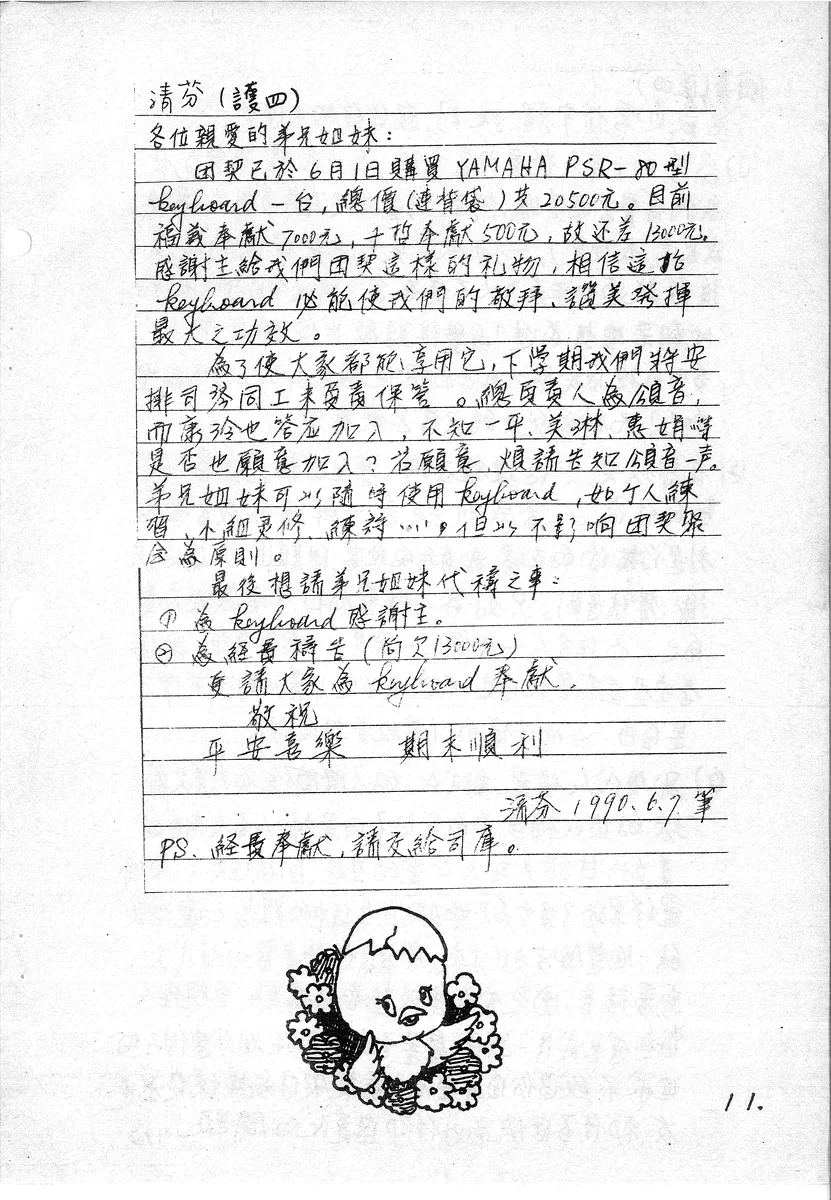 清芬 (護四)
各位親愛的弟兄姐妹:
团契已於6月1日購買 YAMAHA PSR-80型
keyboard 一台, 總價(連背袋)共20500元。目前
福義奉獻7000元, 十哲奉獻500元, 故还差13000元。
感謝主給我們团契這樣的礼物, 相信這抬
keyboard 必能使我們的敬拜、讚美發揮
最大之功效。
為了使大家都能享用它, 下学期我們將安
排司琴同工來負責保管。總負責人為頌音,
而康玲也答应加入, 不知一平、美琳、惠娟等
是否也願意加入? 若願意, 煩請告知頌音一声。
弟兄姐妹可以隨時使用 keyboard, 如个人練
習、小組灵修、練詩……。但以不影响团契聚
会為原則。
最後想請弟兄姐妹代禱之事:
① 為 keyboard 感謝主。
② 為經費禱告 (尚欠13000元)
更請大家為 keyboard 奉獻.
敬祝
平安喜樂 期末順利
清芬 1990.6.7. 筆
PS、經費奉獻, 請交給司庫。
11.